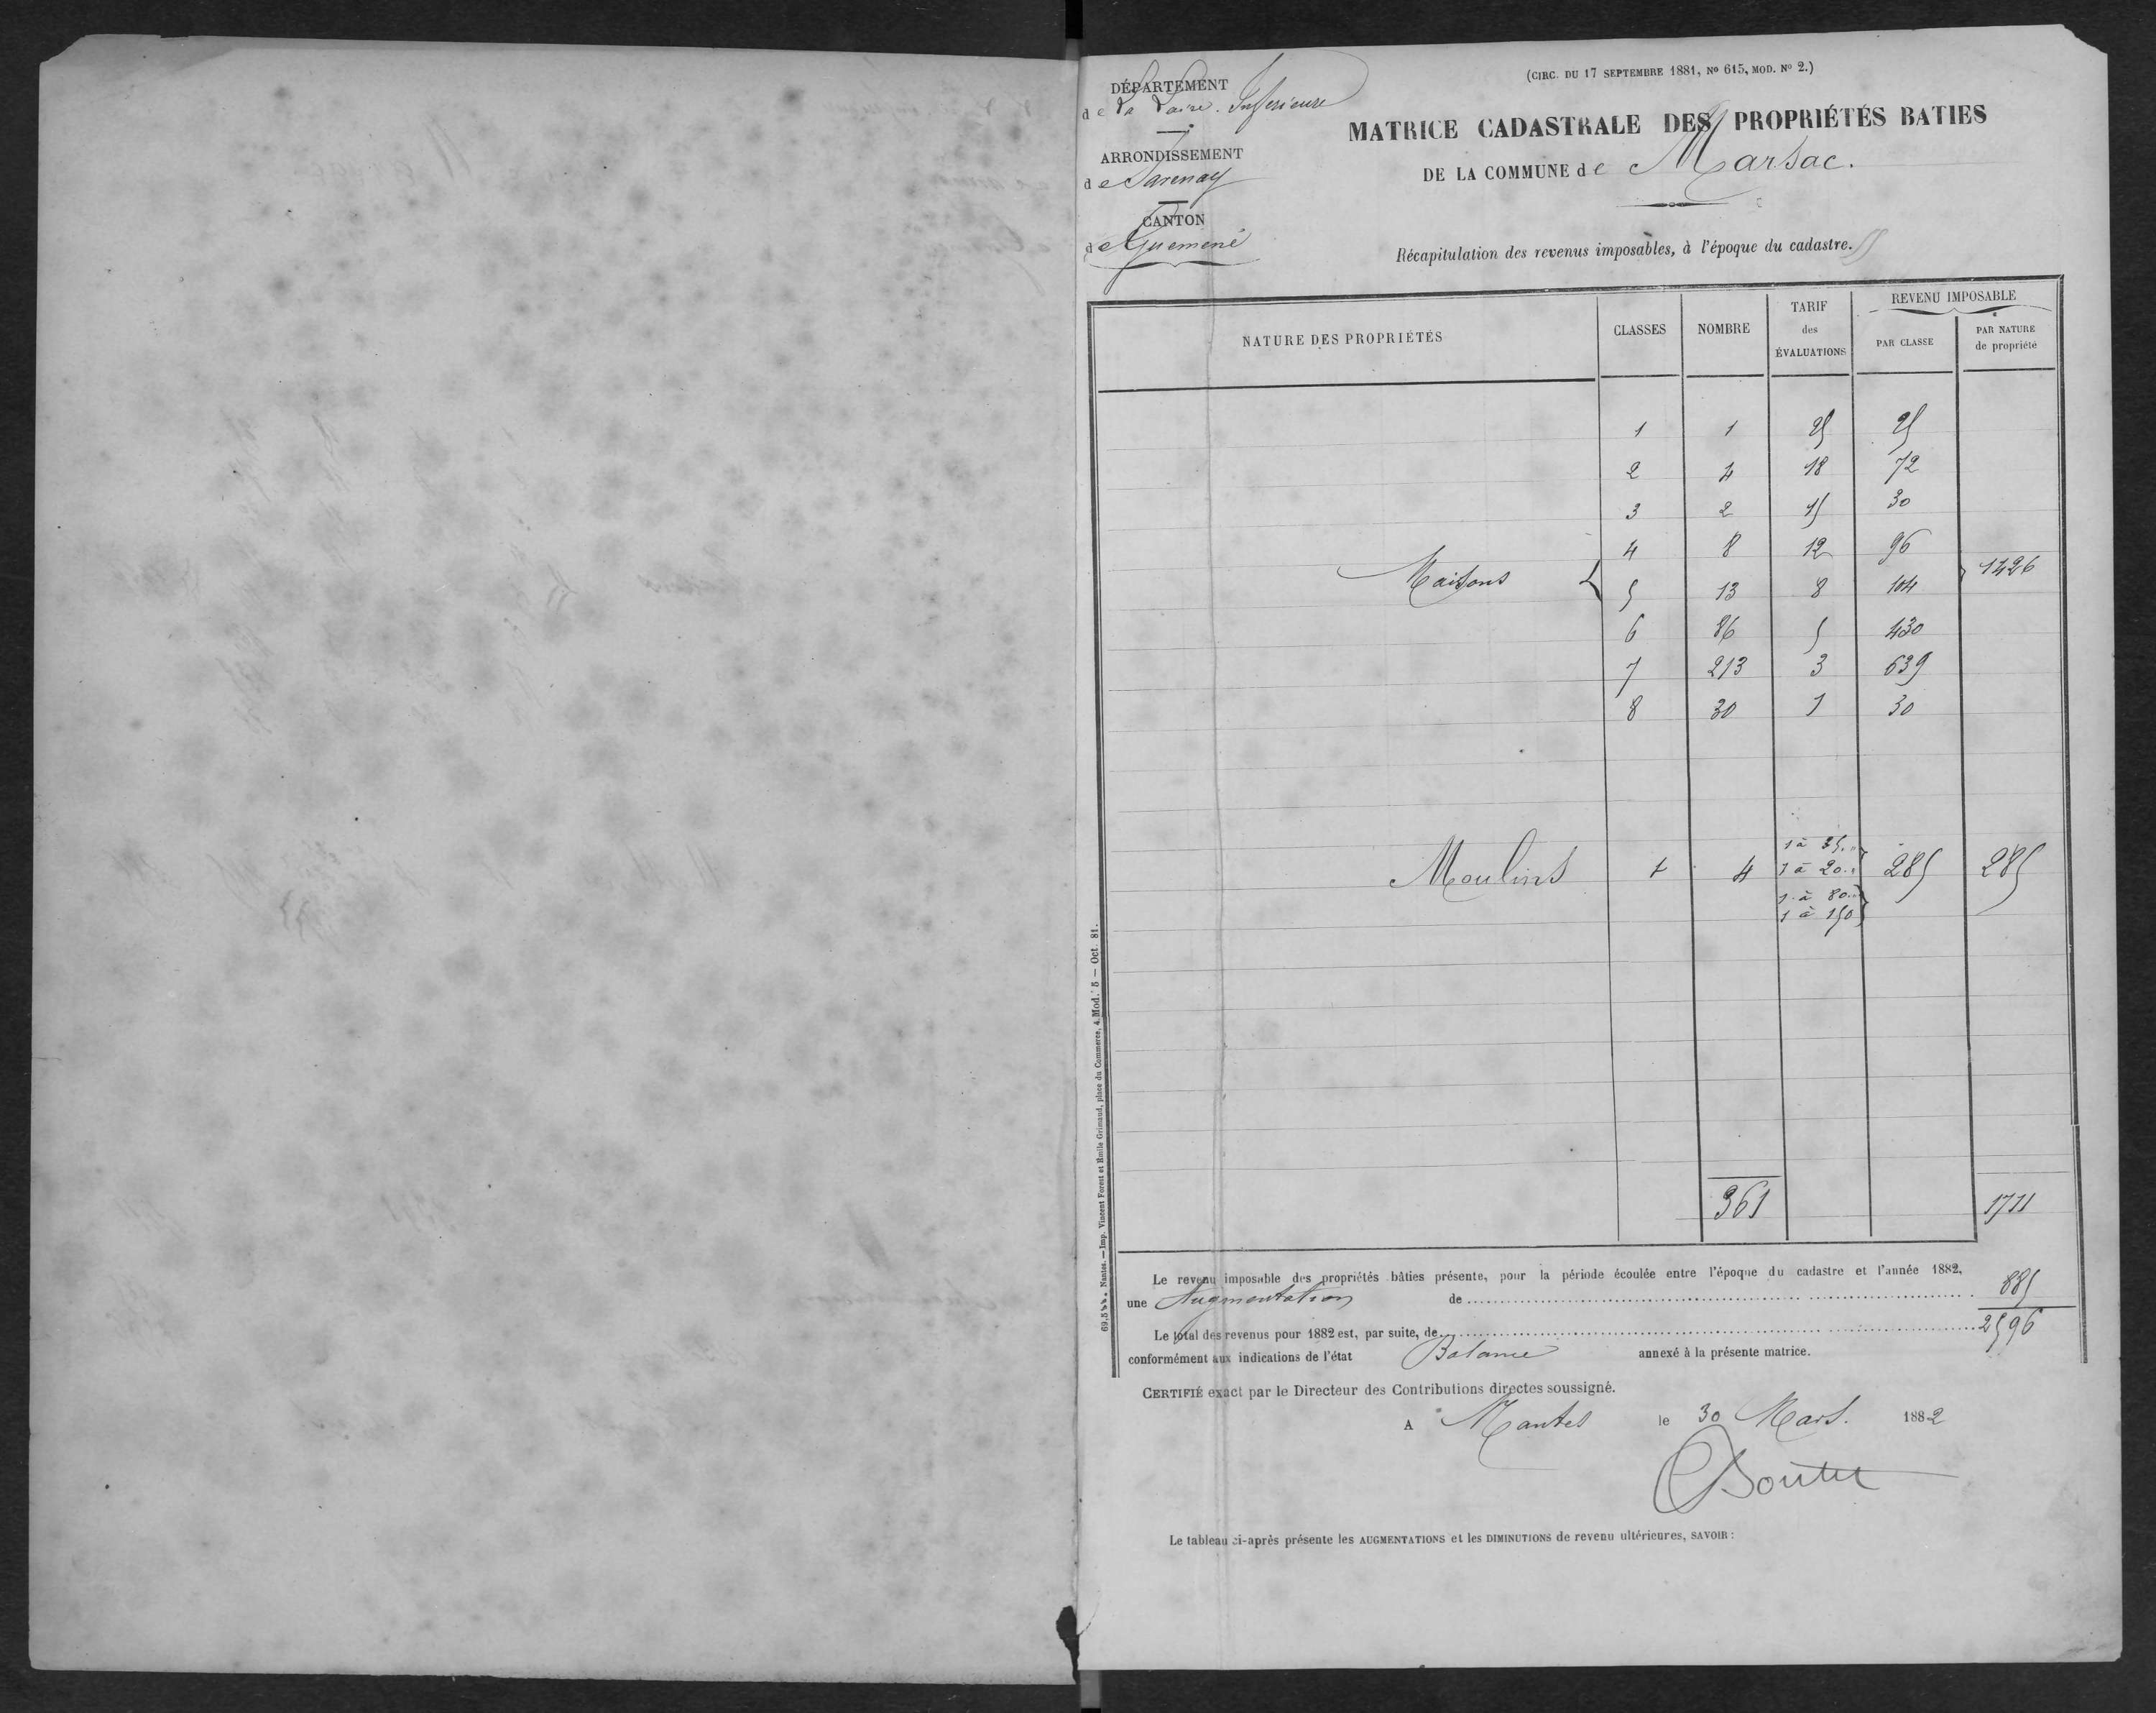 DÉPARTEMENT
de La Loire Inferieure
ARRONDISSEMENT
de Savenay
CANTON
de Guemené
(CIRC. DU 17 SEPTEMBRE 1881, No 615, MOD. No 2.)
MATRICE CADASTRALE DES PROPRIÉTÉS BATIES
DE LA COMMUNE de Marsac.
Récapitulation des revenus imposables, à l'époque du cadastre.
NATURE DES PROPRIÉTÉS CLASSES NOMBRE TARIF des ÉVALUATIONS REVENU IMPOSABLE PAR CLASSE PAR NATURE de propriété
1 1 25 25
2 4 18 72
3 2 15 30
4 8 12 96
Maisons 5 13 8 104 1426
6 86 5 430
7 213 3 639
8 30 1 30
1 à 35
Moulins + 4 1 à 20 285 285
1 à 80
1 à 150
361 1711
Le revenu imposable des propriétés bâties présente, pour la période écoulée entre l'époque du cadastre et l'année 1882,
une Augmentation de 885
Le total des revenus pour 1882 est, par suite, de 2596
conformément aux indications de l'état Balance annexé à la présente matrice.
CERTIFIÉ exact par le Directeur des Contributions directes soussigné.
A Nantes le 30 Mars. 1882
Le tableau ci-après présente les AUGMENTATIONS et les DIMINUTIONS de revenu ultérieures, SAVOIR :
Nantes. — Imp. Vincent Forest et Emile Grimaud, place du Commerce, 4. Mod. 5 — Oct. 81.